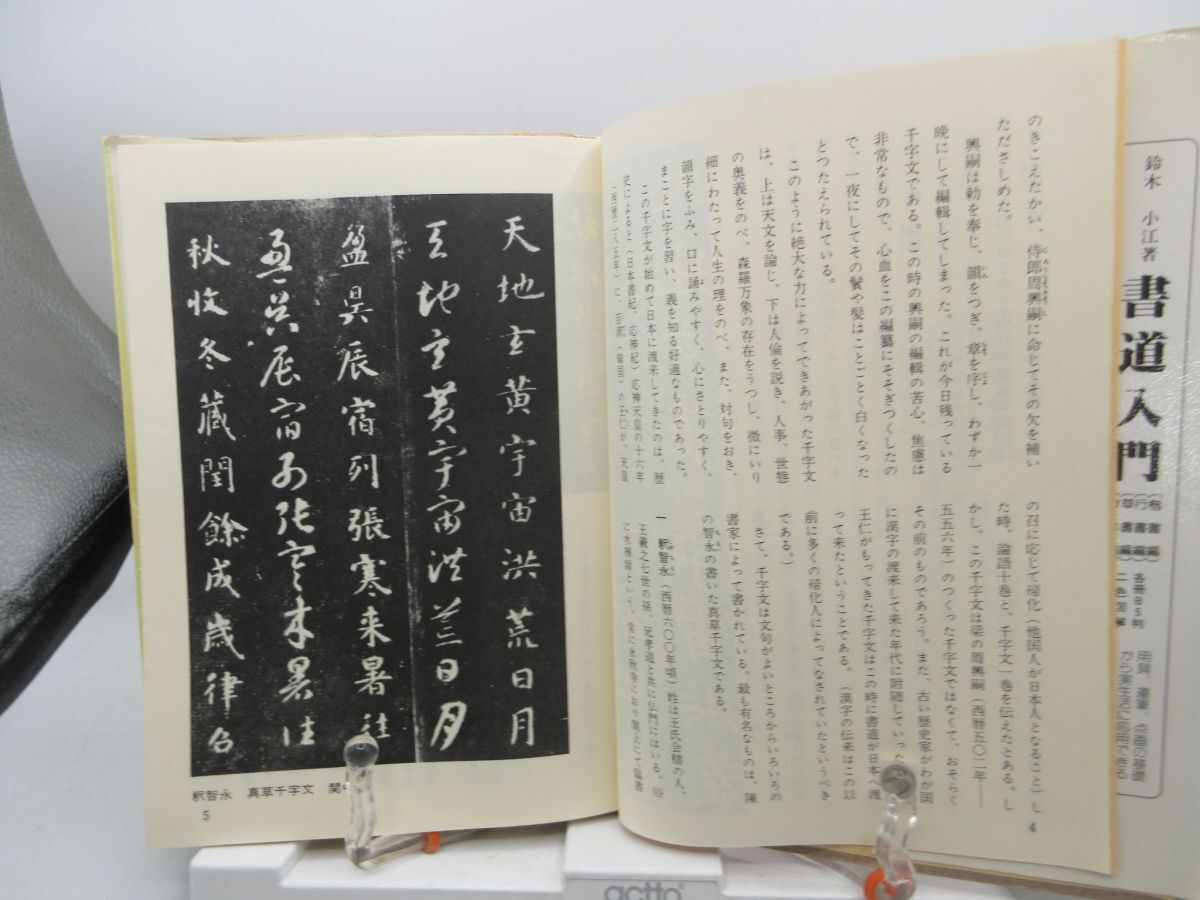 のきこえたかい、侍郎周興嗣に命じてその欠を補い
たださしめた。
興嗣は勅を奉じ、韻をつぎ、章を序し、わずか一
晩にして編輯してしまった。これが今日残っている
千字文である。この時の周興嗣の編輯の苦心、焦慮は
非常なもので、心血をこの編纂にそそぎつくしたの
で、一夜にしてその鬢や髪はことごとく白くなった
とつたえられている。
このように絶大な力によってできあがった千字文
は、上は天文を論じ、下は人倫を説き、人事、世態
の奥義をのべ、森羅万象の存在をうつし、微にいり
細にわたって人生の理をのべ、また、対句をおき、
韻字をふみ、口に誦みやすく、心にさとりやすく、
まことに字を習い、義を知る好適なものであった。
この千字文が始めて日本に渡来してきたのは、歴
史によると（日本書紀、応神紀）応神天皇の十六年
（西暦二八五年）に、百済（韓国）の王仁が、天皇
の召に応じて帰化（他国人が日本人となること）し
た時、論語十巻と、千字文一巻を伝えたとある。し
かし、この千字文は梁の周興嗣（西暦五〇二年——
五五六年）のつくった千字文ではなくて、おそらく
その前のものであろう。また、古い歴史家がわが国
に漢字の渡来して来た年代に附随していった
王仁がもってきた千字文はこの時に書道が日本へ渡
って来たということである。（漢字の伝来はこの以
前に多くの帰化人によってなされていたというべき
である。）
さて、千字文は文句がよいところからいろいろの
書家によって書かれている。最も有名なものは、陳
の智永の書いた真草千字文である。
一 釈智永（西暦六〇〇年頃）姓は王氏会稽の人、
王羲之七世の孫、兄孝道と共に仏門にはいる。俗
に永禅師という。常に永欣寺におり閣上にて臨書
4
天地玄黄宇宙洪荒日月
天地玄黄宇宙洪荒日月
盈昃辰宿列張寒来暑往
盈昃辰宿列張寒来暑往
秋收冬藏閏餘成歳律呂
釈智永 真草千字文 関中
5
鈴木 小江著
書道入門
楷書編
行書編
草書編
各冊B5判
二色図解
用具、運筆、点画の基礎
から実生活に応用できる
actto